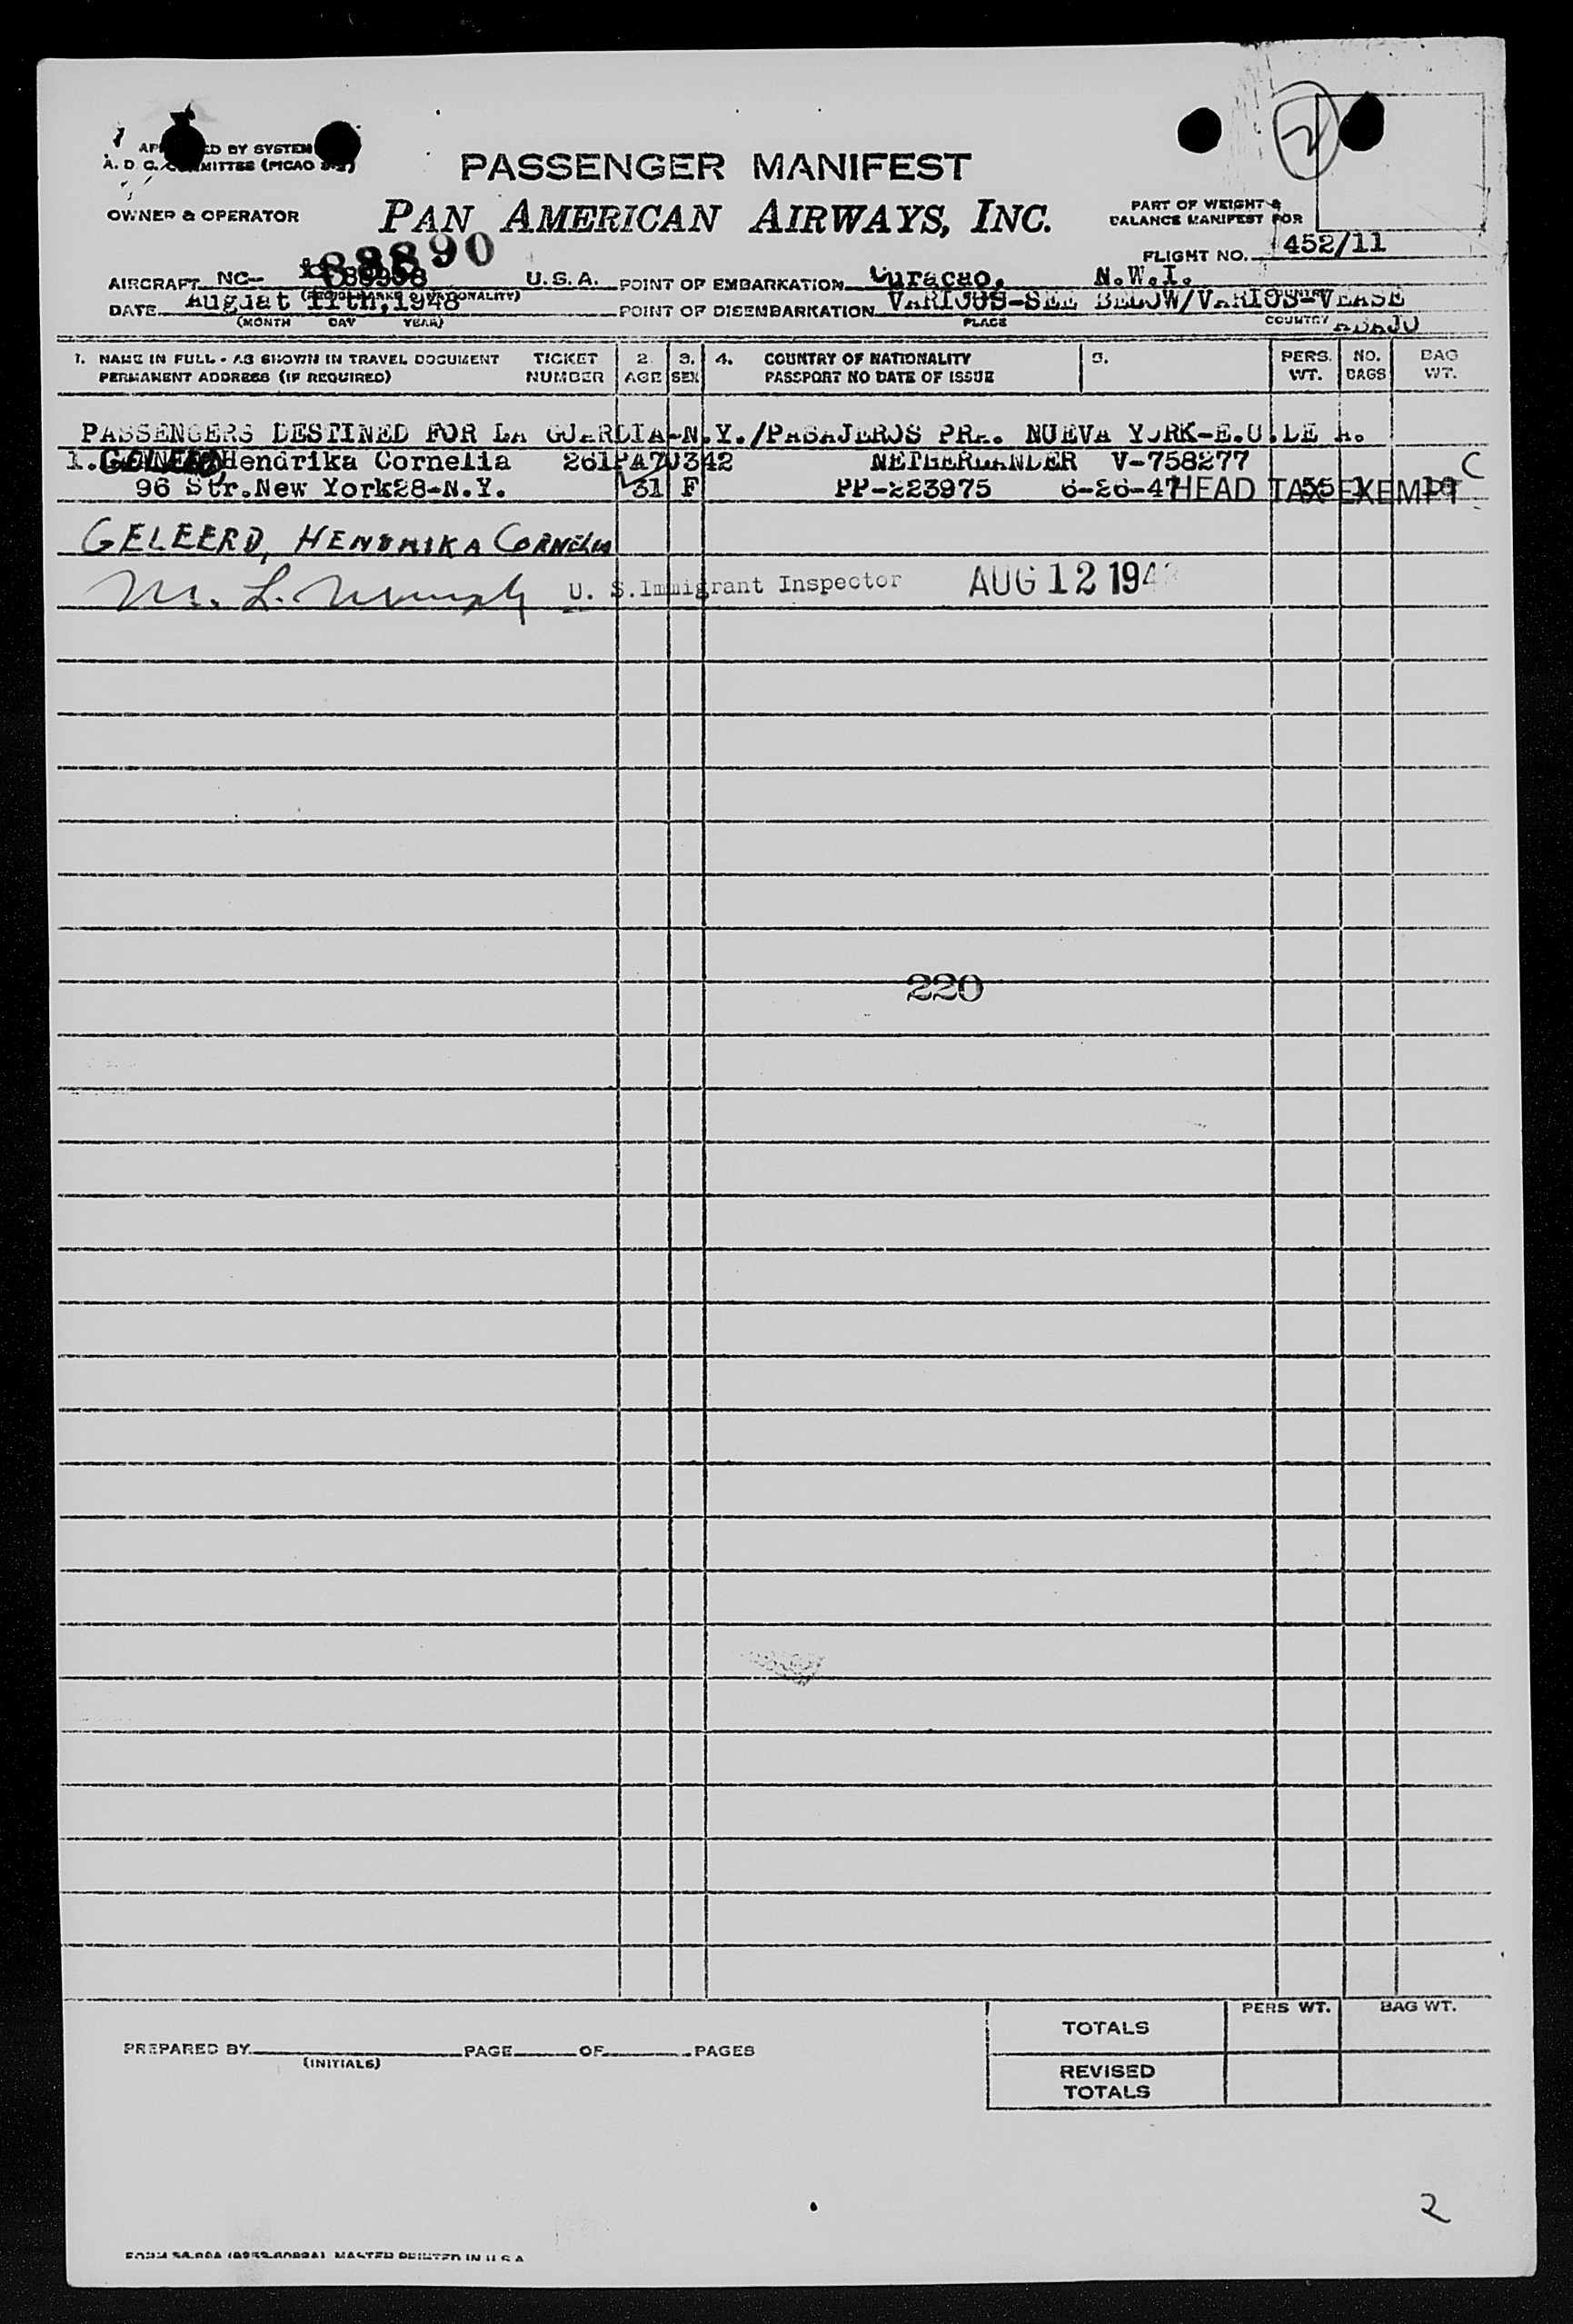 2
BY SYSTEM
A. D. C. COMMITTEE (PICAO
PASSENGER MANIFEST
OWNER & OPERATOR
PAN AMERICAN AIRWAYS, INC.
PART OF WEIGHT &
BALANCE MANIFEST FOR
FLIGHT NO. 452/11
88890
AIRCRAFT NC- U.S.A. POINT OF EMBARKATION Curacao, N.W.I.
DATE August 11th, 1948 POINT OF DISEMBARKATION VARIOUS-SEE BELOW/VARIOS-VEASE
(MONTH DAY YEAR) PLACE COUNTRY ABAJO
1. NAME IN FULL - AS SHOWN IN TRAVEL DOCUMENT TICKET 2. 3. 4. COUNTRY OF NATIONALITY 5. PERS. NO. BAG
PERMANENT ADDRESS (IF REQUIRED) NUMBER AGE SEX PASSPORT NO DATE OF ISSUE WT. BAGS WT.
PASSENGERS DESTINED FOR LA GUARDIA-N.Y./PASAJEROS PRA. NUEVA YORK-E.U.DE A.
1. GELEERD, Hendrika Cornelia 261PA70342 NETHERLANDER V-758277 C
96 Str.New York28-N.Y. 31 F PP-223975 6-26-47 HEAD TAX EXEMPT 55 1
GELEERD, HENDRIKA CORNELIA
U. S. Immigrant Inspector AUG 12 194
220
TOTALS PERS WT. BAG WT.
PREPARED BY PAGE OF PAGES
(INITIALS)
REVISED
TOTALS
2
MASTER PRINTED IN U S A